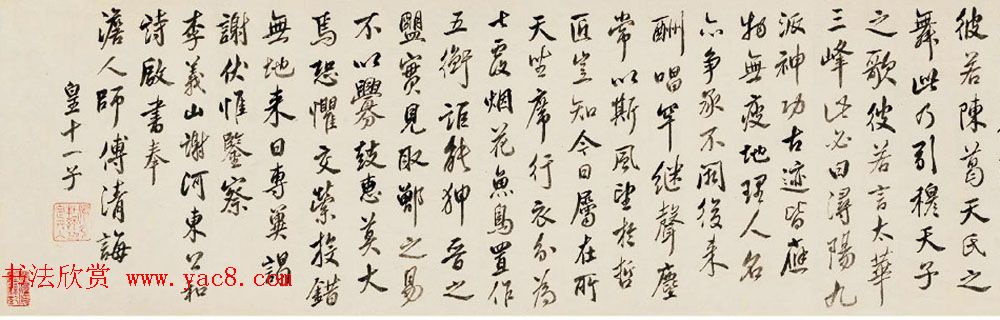 彼若陳葛天氏之
舞此乃引穆天子
之歌彼若言太華
三峰此必曰潯陽九
派神功古迹皆應
物無疲地理人名
亦争承不闕後来
酬唱罕継聲塵
常以斯風望於哲
匠豈知今日屬在所
天坐席行衣分為
七覆烟花魚鳥置作
五衡詎能狎晋之
盟實見取鄫之易
不以釁鼓惠莫大
焉恐懼交縈投錯
無地来日專冀謁
謝伏惟鑒察
李義山謝河東公和
詩啟書奉
澹人師傅清誨
皇十一子
书法欣赏 www.yac8.com